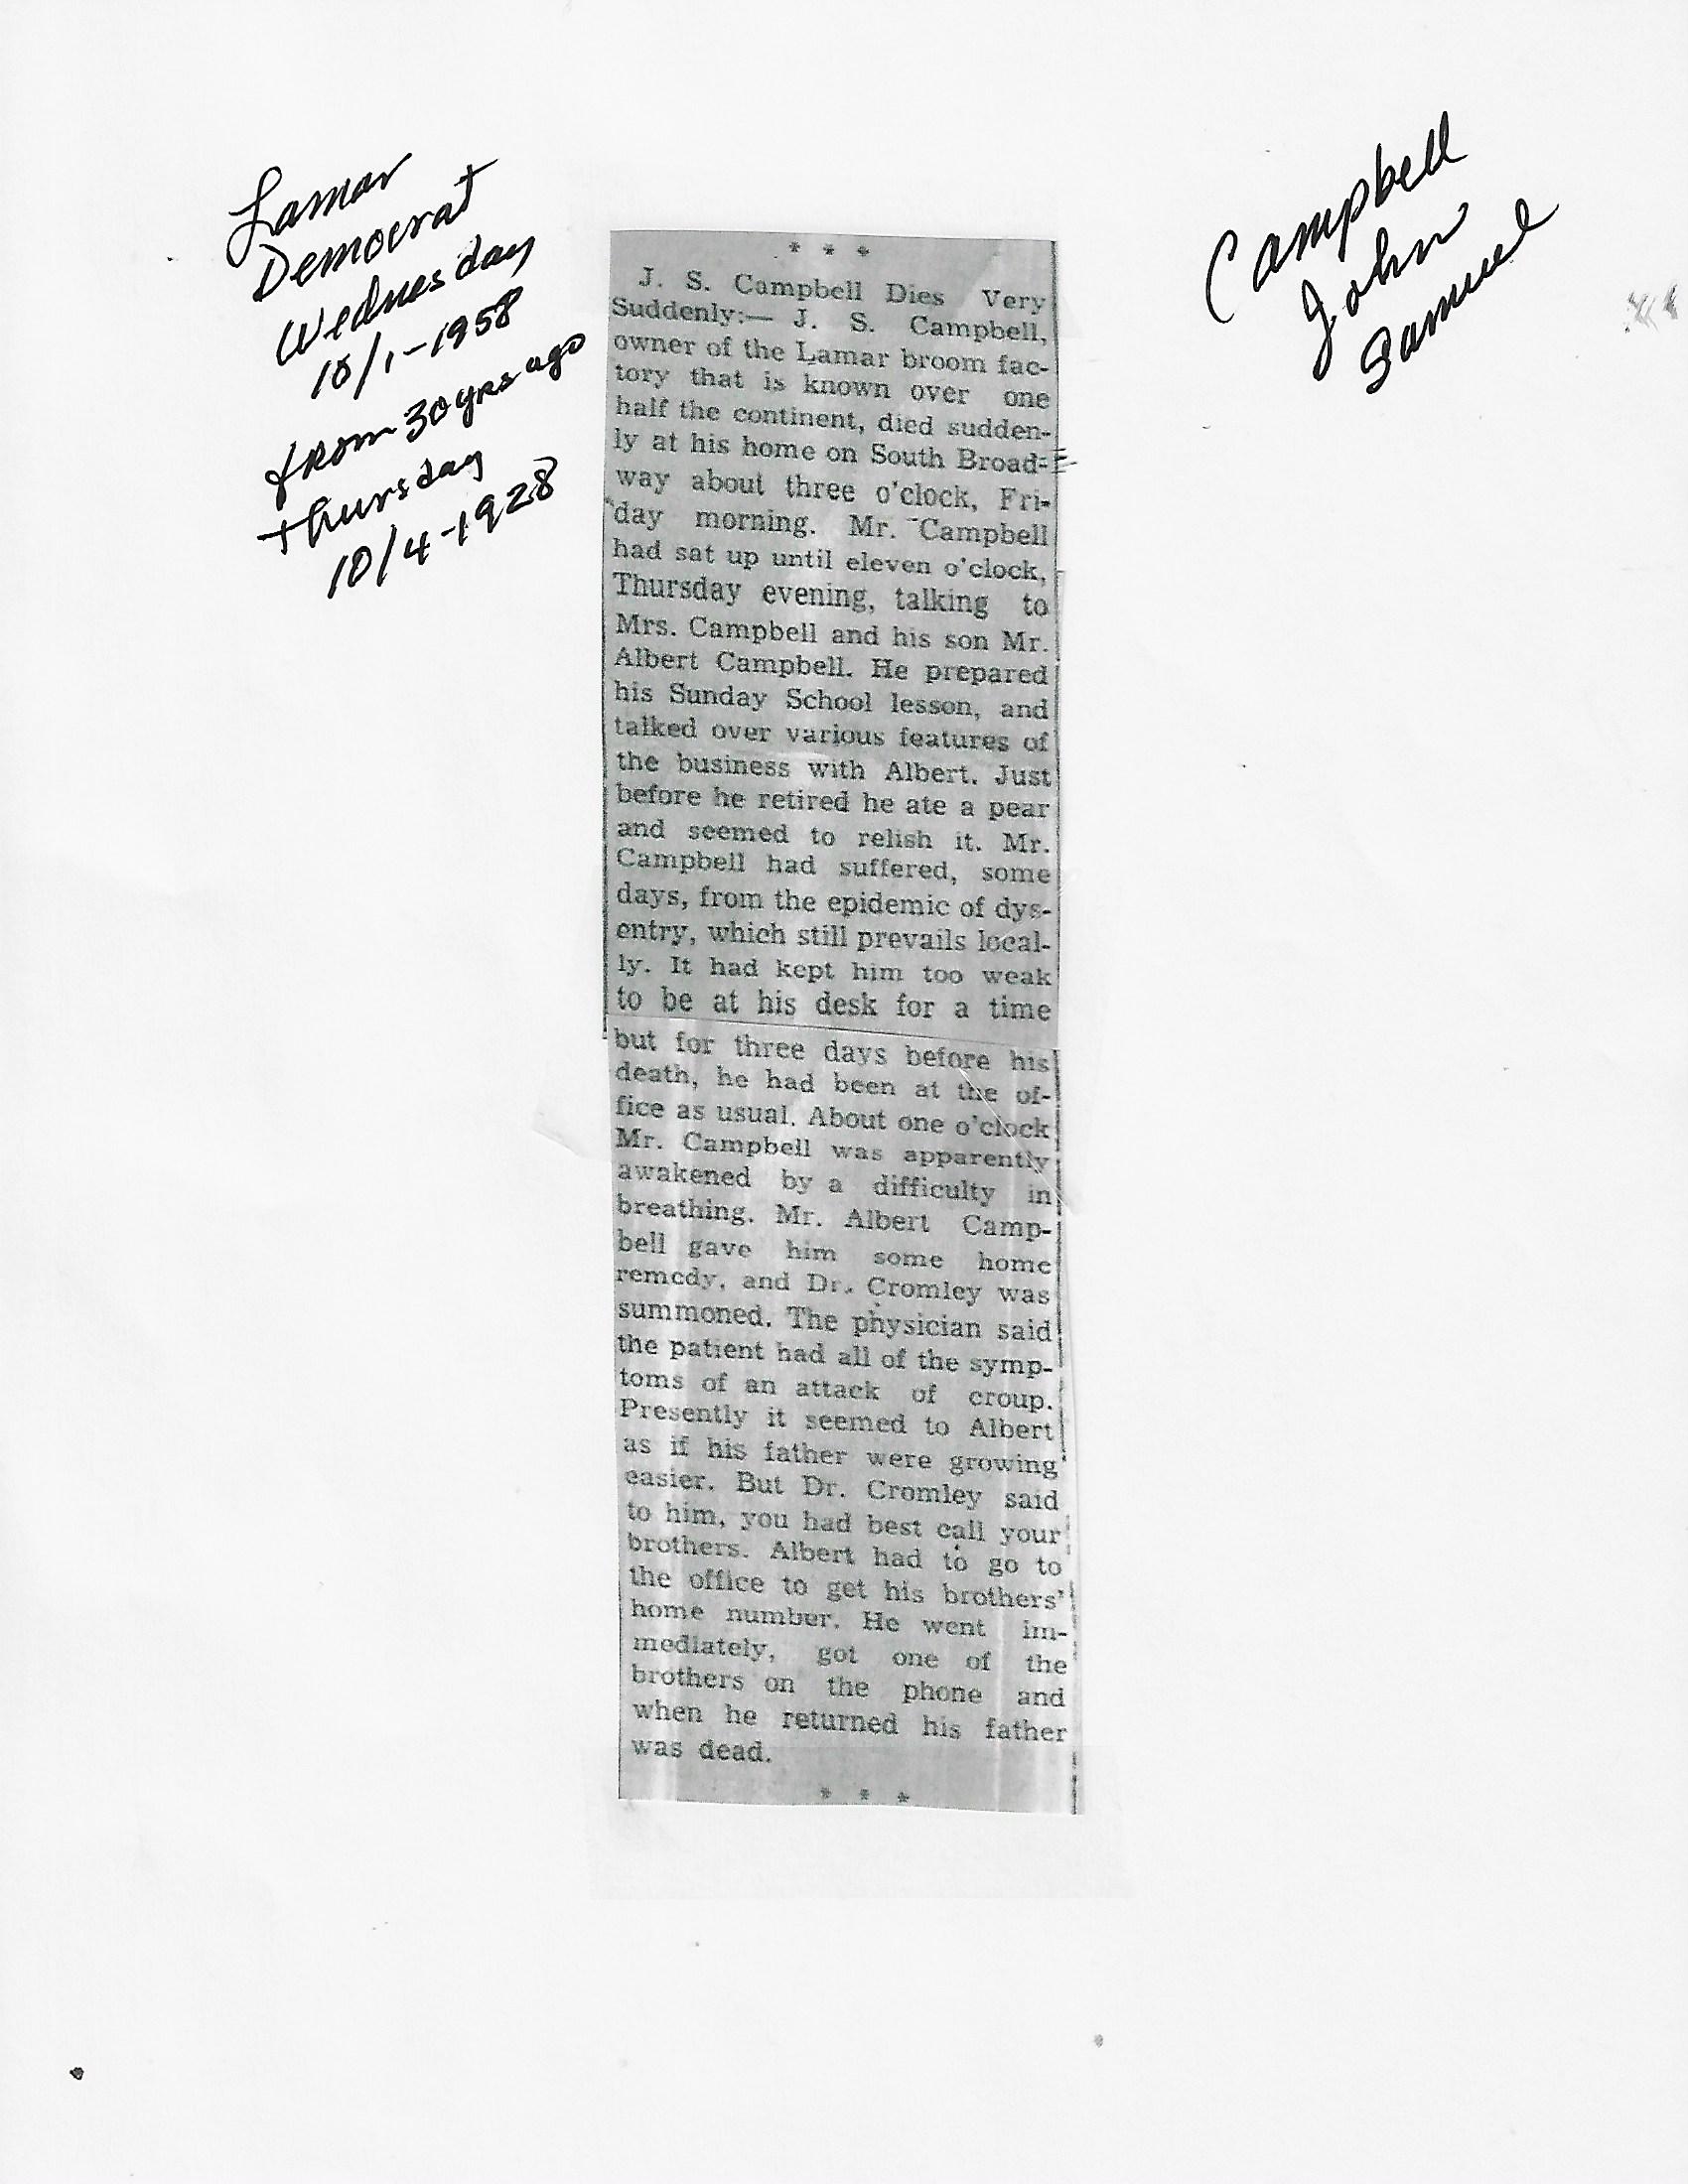 Lamar
Democrat
Wednesday
10/1-1958
from 30 yrs ago
Thursday
10/4-1928
Campbell
John
Samuel
* * *
J. S. Campbell Dies Very
Suddenly:— J. S. Campbell,
owner of the Lamar broom fac-
tory that is known over one
half the continent, died sudden-
ly at his home on South Broad-
way about three o'clock, Fri-
day morning. Mr. Campbell
had sat up until eleven o'clock,
Thursday evening, talking to
Mrs. Campbell and his son Mr.
Albert Campbell. He prepared
his Sunday School lesson, and
talked over various features of
the business with Albert. Just
before he retired he ate a pear
and seemed to relish it. Mr.
Campbell had suffered, some
days, from the epidemic of dys-
entry, which still prevails local-
ly. It had kept him too weak
to be at his desk for a time
but for three days before his
death, he had been at the of-
fice as usual. About one o'clock
Mr. Campbell was apparently
awakened by a difficulty in
breathing. Mr. Albert Camp-
bell gave him some home
remedy, and Dr. Cromley was
summoned. The physician said
the patient had all of the symp-
toms of an attack of croup.
Presently it seemed to Albert
as if his father were growing
easier. But Dr. Cromley said
to him, you had best call your
brothers. Albert had to go to
the office to get his brothers'
home number. He went im-
mediately, got one of the
brothers on the phone and
when he returned his father
was dead.
* * *